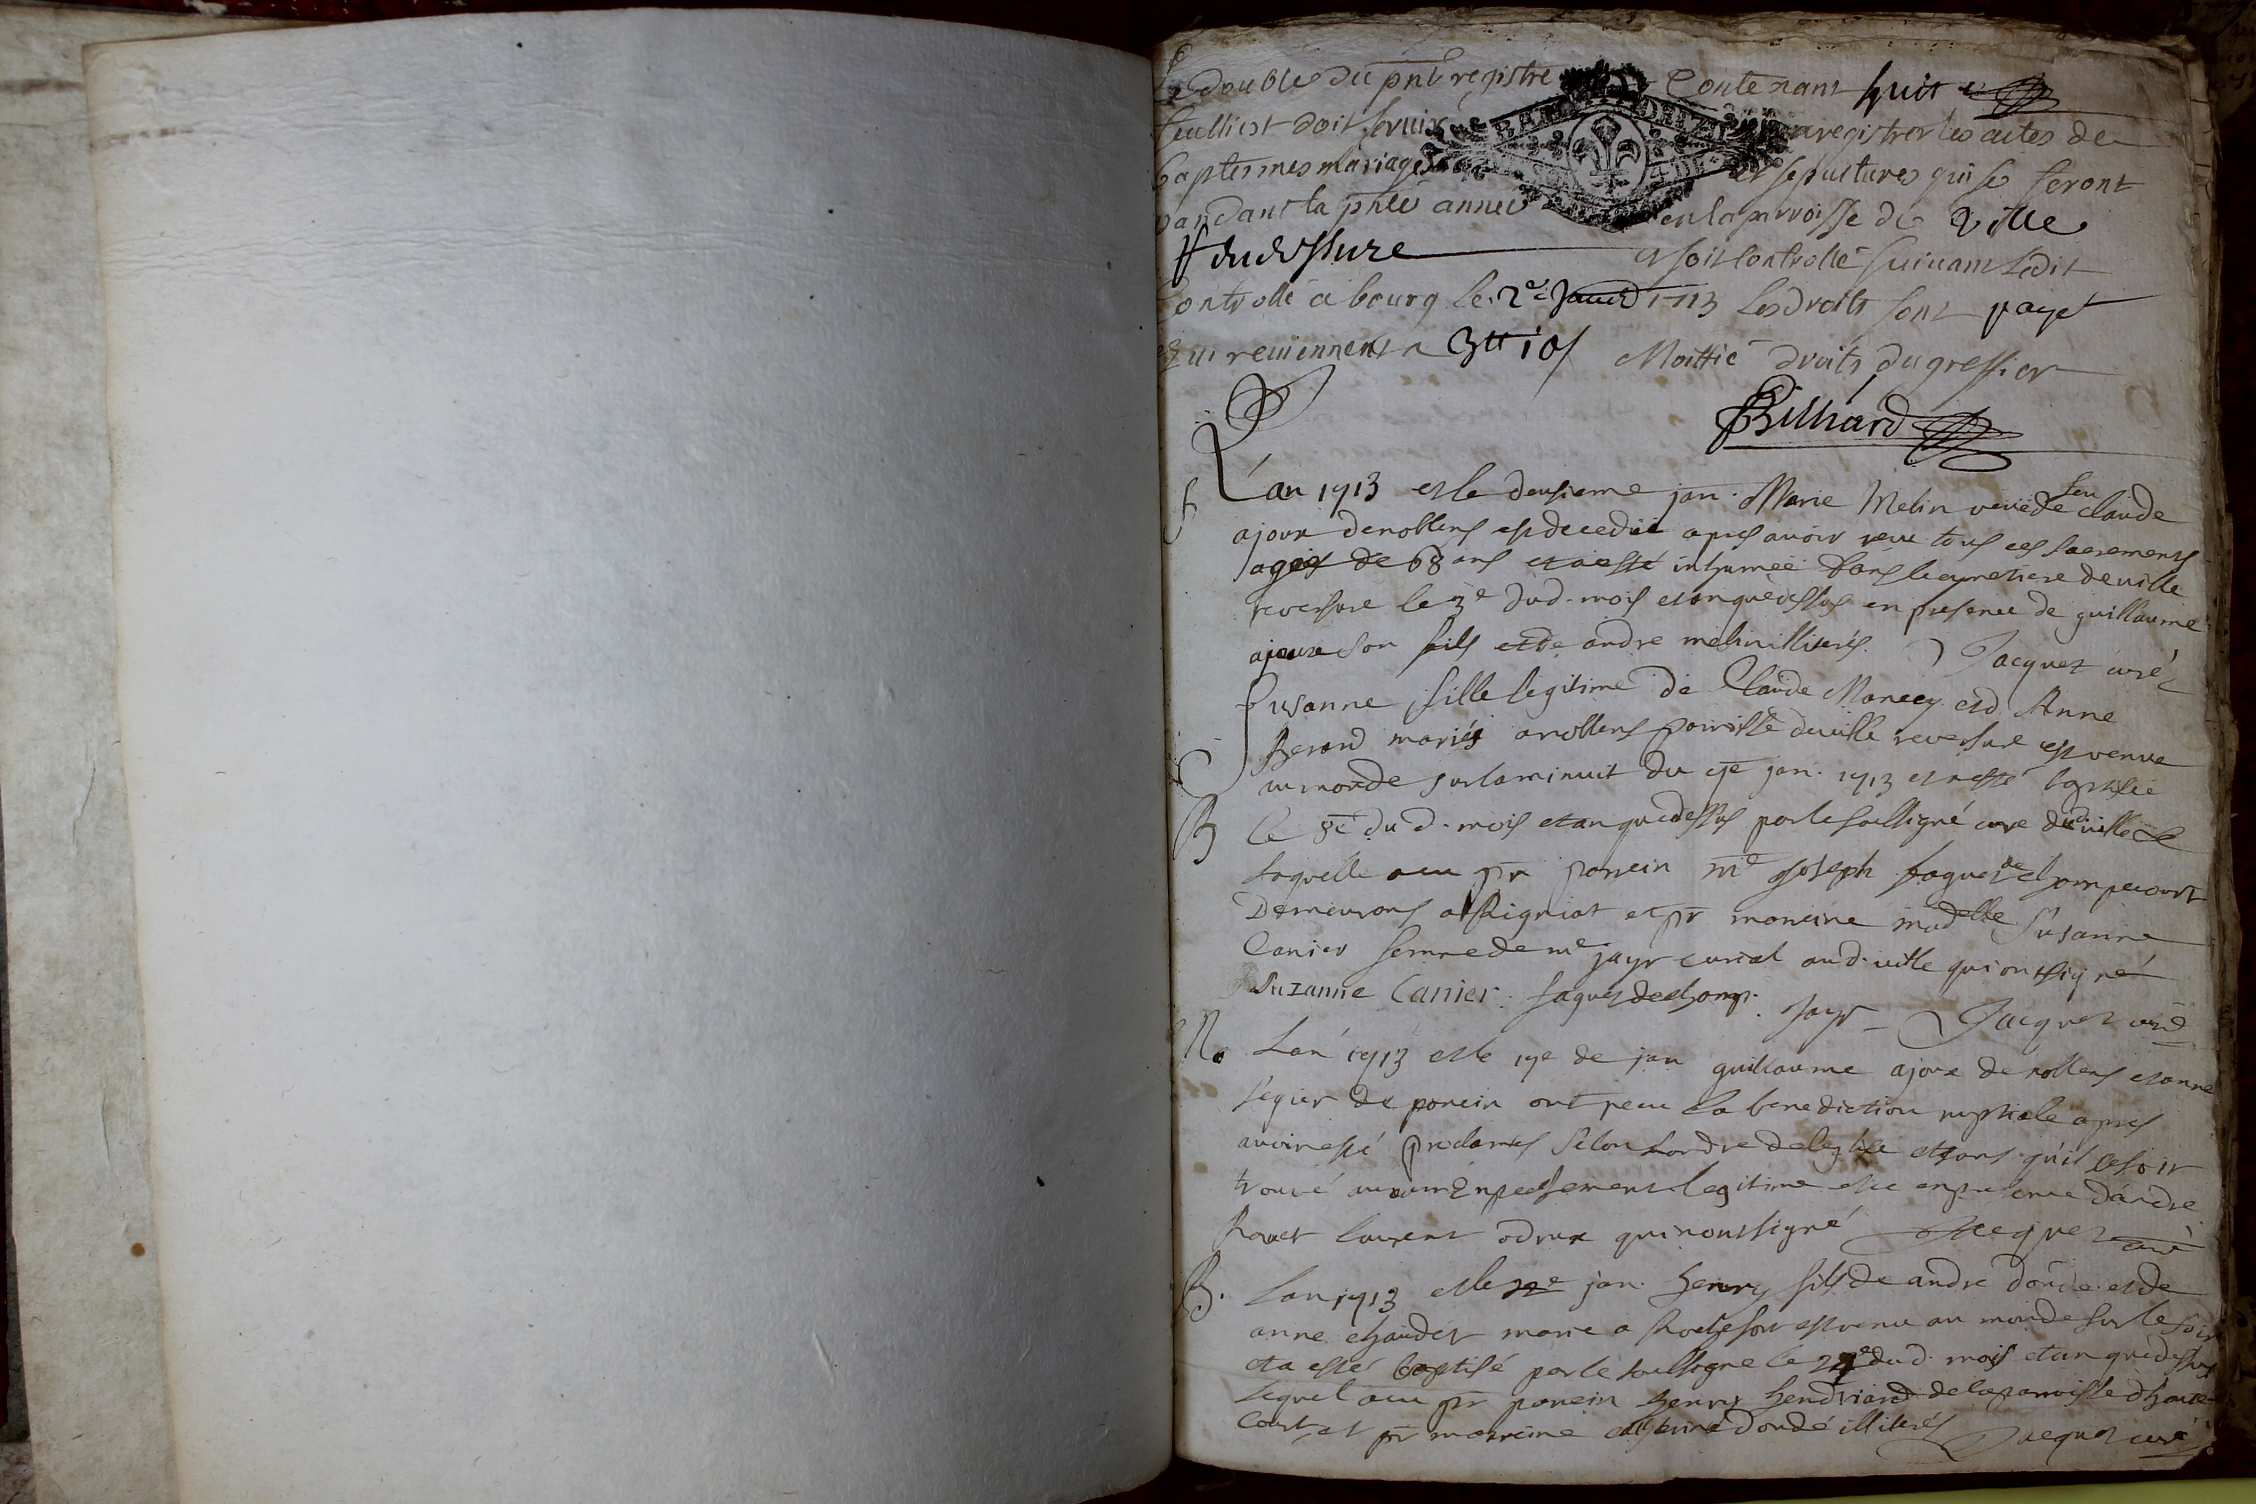 Le double du pnt registre Contenant huit
feullist doit servir anregistrer les actes de
baptesmes mariages et sepultures qui se feront
pandant la pnte annee en la parroisse de Ville
Reversure et soit controllé suivant ledit
Controllé a bourg le 2e Janvr 1713 les droits sont payet
qui reviennent a 3tt 10s Moittié droits du greffier
Billiard
L'an 1713 et le deusieme jan. Marie Melin veuve de feu claude
ajoux de nollens est decedéé apres avoir receu tous ces sacrements
agéé de 68 ans et a esté inhumée dans le cymetiere de ville
reversure le 3e dud. mois et an que dessus en presence de guillaume
ajoux son fils et de andre melin illiterés. Jacquet curé
S
Susanne fille legitime de Claude Morecy et d Anne
Berard mariés a nollens parroisse de ville reversure est venue
au monde sur la minuit du 7e jan. 1713 et a esté baptisée
B le 8e du d. mois et an que dessus par le soussigné curé dud. ville
laquelle a eu pr parrein me Joseph faguet de champecourt
Demeurant a Rigniat et pr marreine madelle Susanne
Carrier femme de me jayr curial aud. ville qui ont signé
Suzanne Carrier. faguet de champ. Jayr Jacquet curé
M. Lan 1713 et le 17e de jan guillaume ajoux de nollens et anne
seguer de poncin ont receu la benediction nuptiale apres
avoir esté proclamés selon l'ordre de leglise et sans qu'il ce soit
trouvé aucun Enpechement legitime et ce en presence d'andre
Rouet laurent odoux qui n'ont signé Jacquet curé
B. Lan 1713 et le 22e jan. henry fils de andre dondé et de
anne chaudet marie a Rochefort est venu au monde sur le soir
et a esté baptisé par le soussigné le 24e dud. mois et an que dessus
lequel a eu pr parrein henry hendriard de la parroisse d'haute
court et pr marreine catherine dondé illiterés Jacquet curé